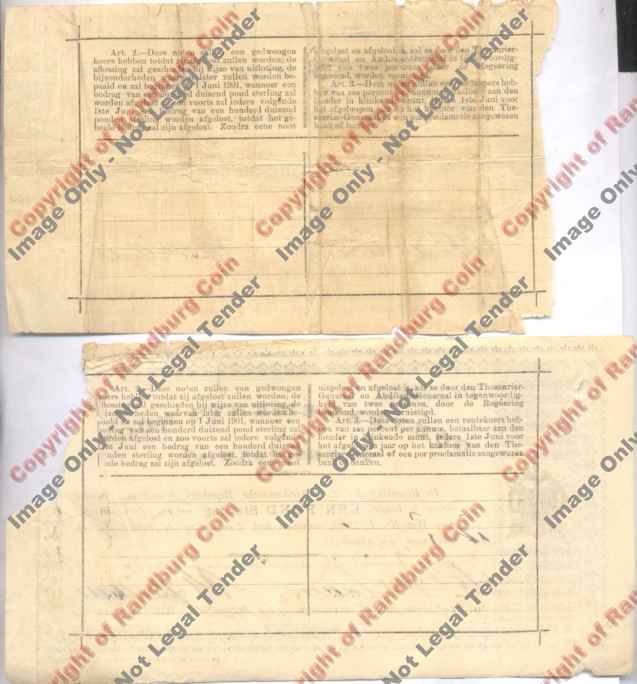 Art. 2.—Deze noten zullen een gedwongen
koers hebben totdat zij afgelost zullen worden; de
aflossing zal geschieden bij wijze van uitloting, de
bijzonderheden later zullen worden be-
paald en zal 1 Juni 1901, wanneer een
bedrag van een honderd duizend pond sterling zal
worden afgelost en zoo voorts zal iedere volgende
1ste Juni een bedrag van een honderd duizend
ponden sterling worden afgelost, totdat het ge-
heele bedrag zal zijn afgelost. Zoodra eene noot
uitgeloot en afgelost is, zal ze door den Thesaurier-
Generaal en Auditeur-Generaal in tegenwoordig-
heid van twee getuigen, door de Regeering
benoemd, worden vernietigd.
Art. 3.—Deze noten zullen een rentekoers heb-
ben van zes percent per annum, betaalbaar aan den
houder in klinkende munt, iedere 1ste Juni voor
het afgeloopen jaar op het kantoor van den The-
saurier-Generaal of een per proclamatie aangewezen
Art. 2.—Deze noten zullen een gedwongen
koers hebben totdat zij afgelost zullen worden; de
aflossing zal geschieden bij wijze van uitloting, de
bijzonderheden waarvan later zullen worden be-
paald en zal beginnen op 1 Juni 1901, wanneer een
bedrag van een honderd duizend pond sterling zal
worden afgelost en zoo voorts zal iedere volgende
1ste Juni een bedrag van een honderd duizend
ponden sterling worden afgelost, totdat het ge-
heele bedrag zal zijn afgelost. Zoodra eene noot
uitgeloot en afgelost is, zal ze door den Thesaurier-
Generaal en Auditeur-Generaal in tegenwoordig-
heid van twee getuigen, door de Regeering
benoemd, worden vernietigd.
Art. 3.—Deze noten zullen een rentekoers heb-
ben van zes percent per annum, betaalbaar aan den
houder in klinkende munt, iedere 1ste Juni voor
het afgeloopen jaar op het kantoor van den The-
saurier-Generaal of een per proclamatie aangewezen
Copyright of Randburg Coin
Image Only - Not Legal Tender